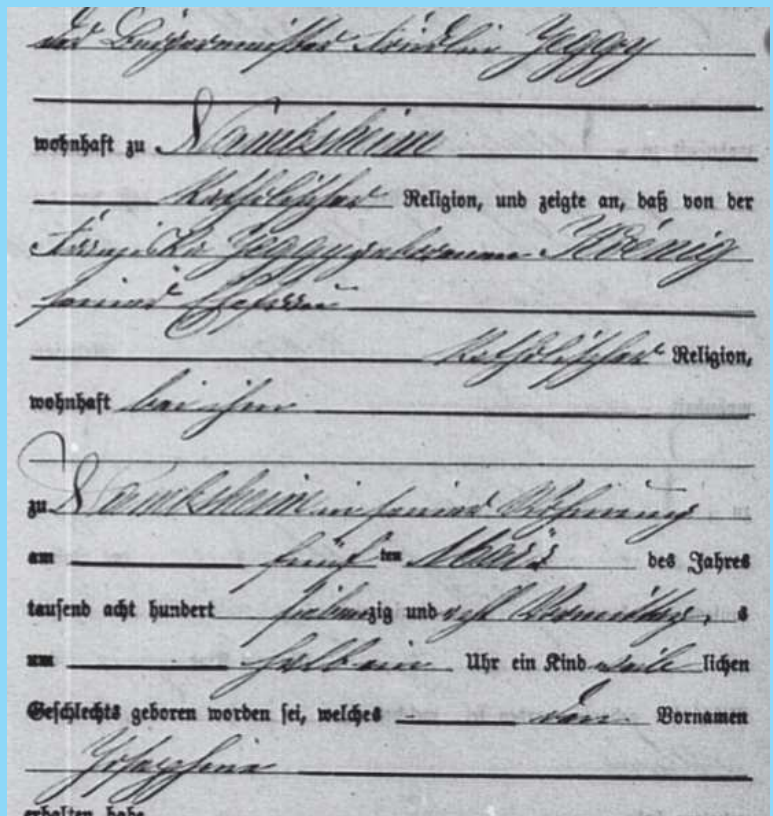 der Bürgermeister Fridolin Jeggy
wohnhaft zu Namksheim
katholischer Religion, und zeigte an, daß von der
Franziska Jeggy geborenen Koenig
seiner Ehefrau
katholischer Religion,
wohnhaft bei ihm
zu Namksheim in seiner Wohnung
am fünf ten März des Jahres
tausend acht hundert siebenzig und acht Vormittag s
um halb ein Uhr ein Kind weib lichen
Geschlechts geboren worden sei, welches den Vornamen
Josephine
erhalten habe